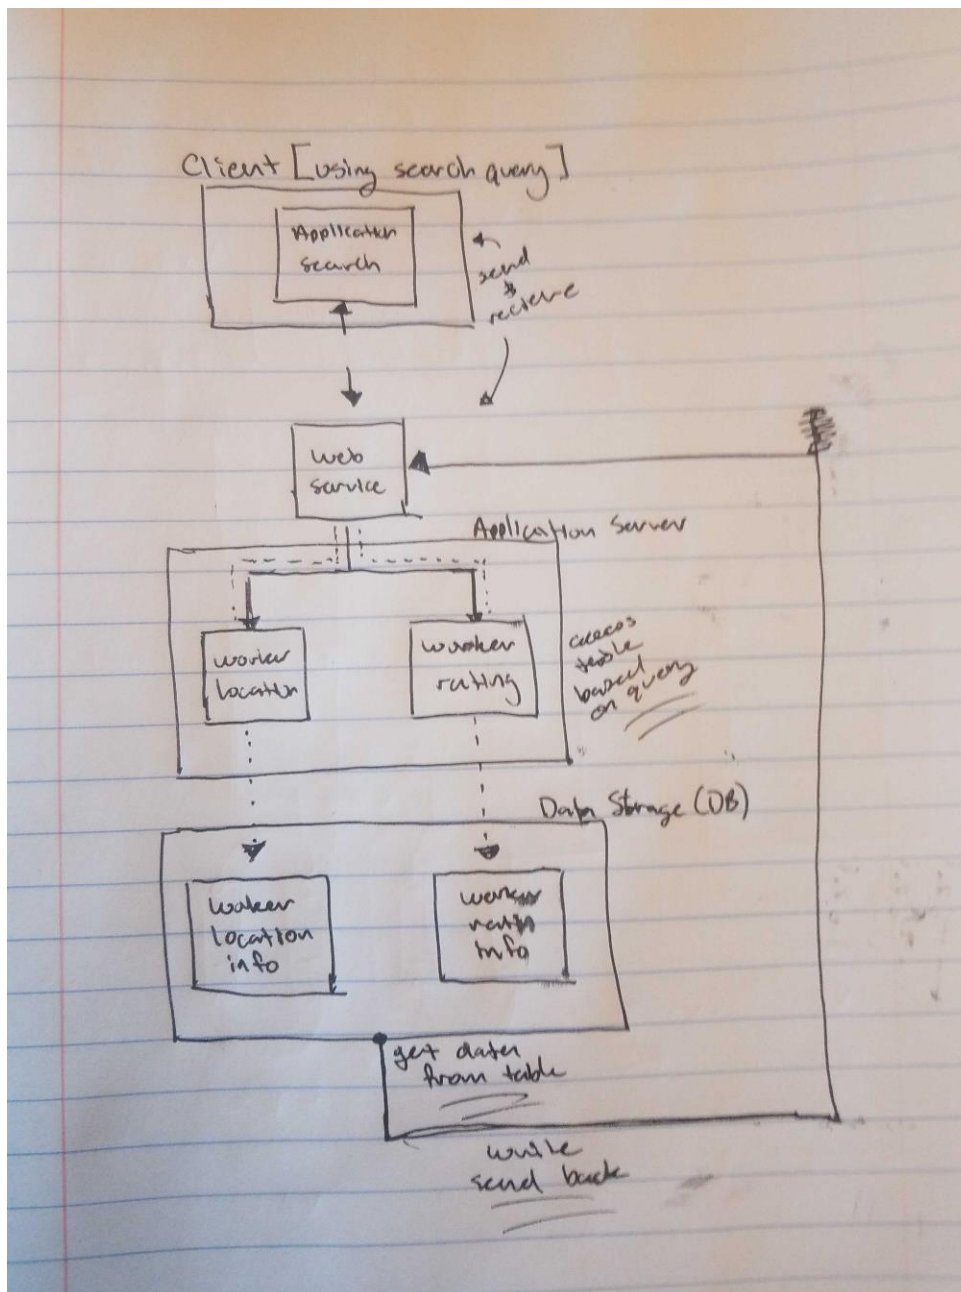 Client [using search query]
Application
search
send
&
recieve
web
service
Application Server
worker
location
worker
rating
based
on query
Data Storage (DB)
woker
location
info
worker
info
get data
from table
send back